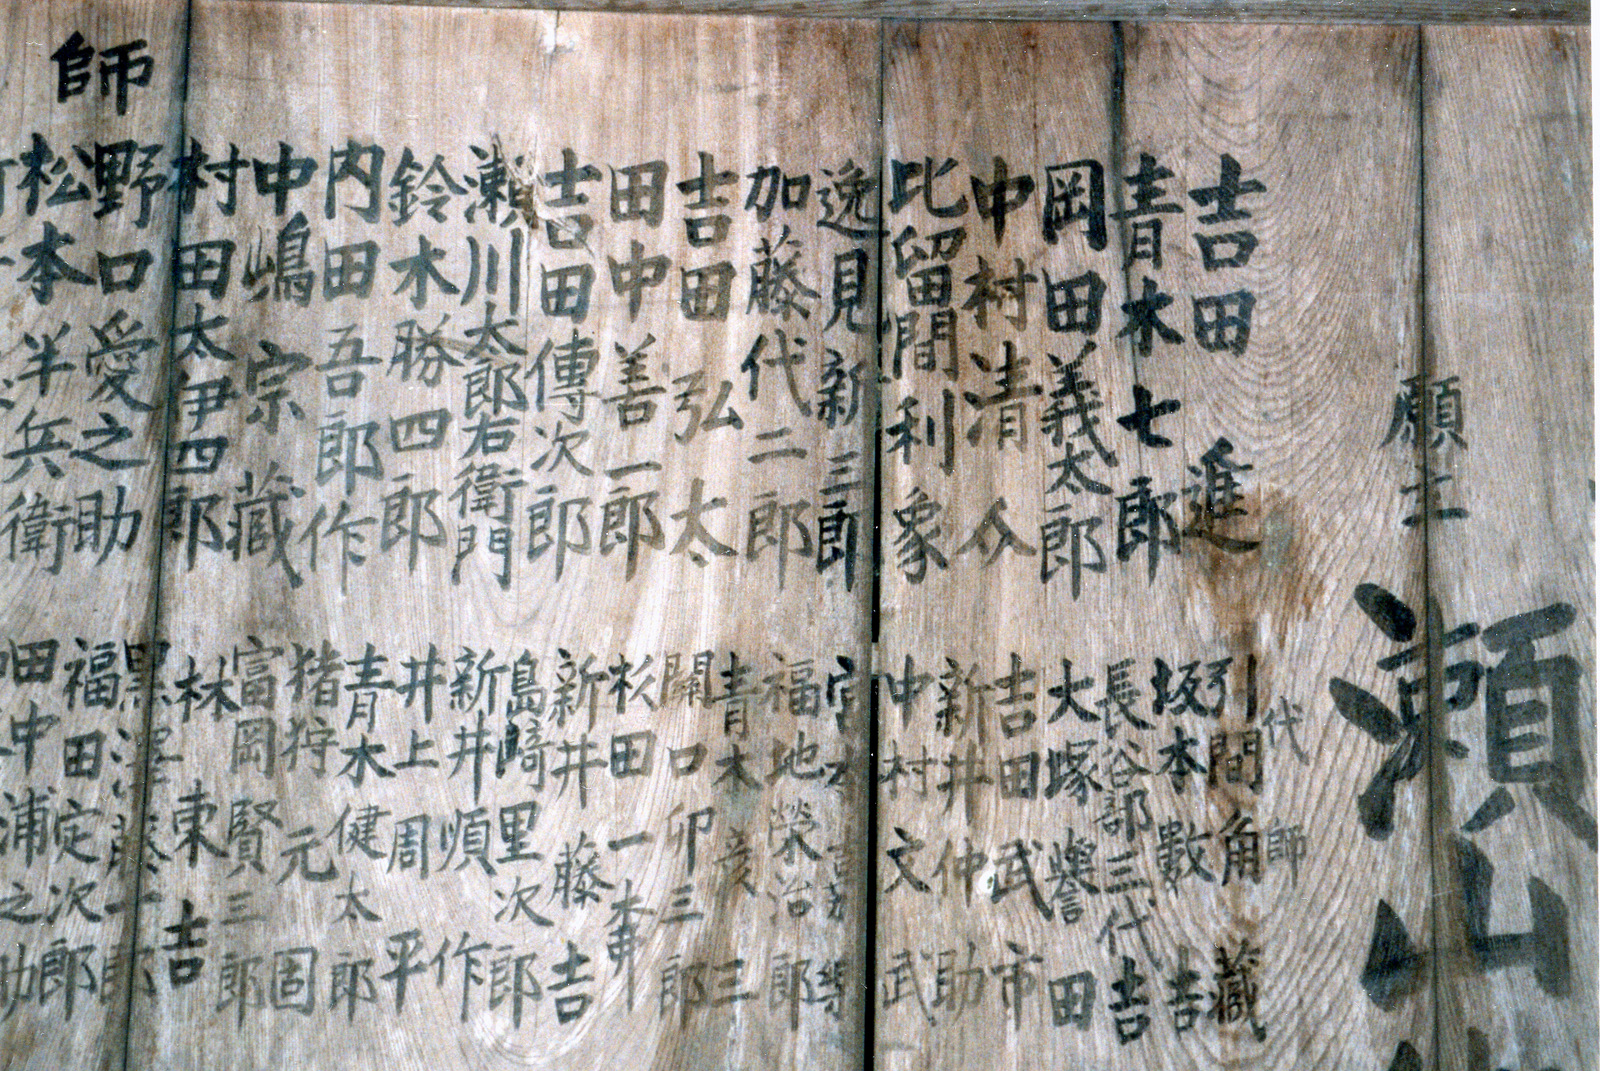 願主
瀬山
吉田進
青木七郎
岡田義太郎
中村清
比留間利象
逸見新三郎
加藤代二郎
吉田弘太
田中善一郎
吉田傳次郎
瀬川太郎右衛門
鈴木勝四郎
内田吾郎作
中嶋宗藏
村田太伊四郎
師
野口愛之助
松本半兵衛
代師
引間角藏
坂本數吉
長谷部三代吉
大塚譽田
吉田武市
新井仲助
中村文武
福地榮治郎
青木彦三
關口卯三郎
杉田一
新井藤吉
島崎里次郎
新井順作
井上周平
青木健太郎
猪狩元固
富岡賢三郎
林東吉
黒澤藤十郎
福田定次郎
田中浦之助